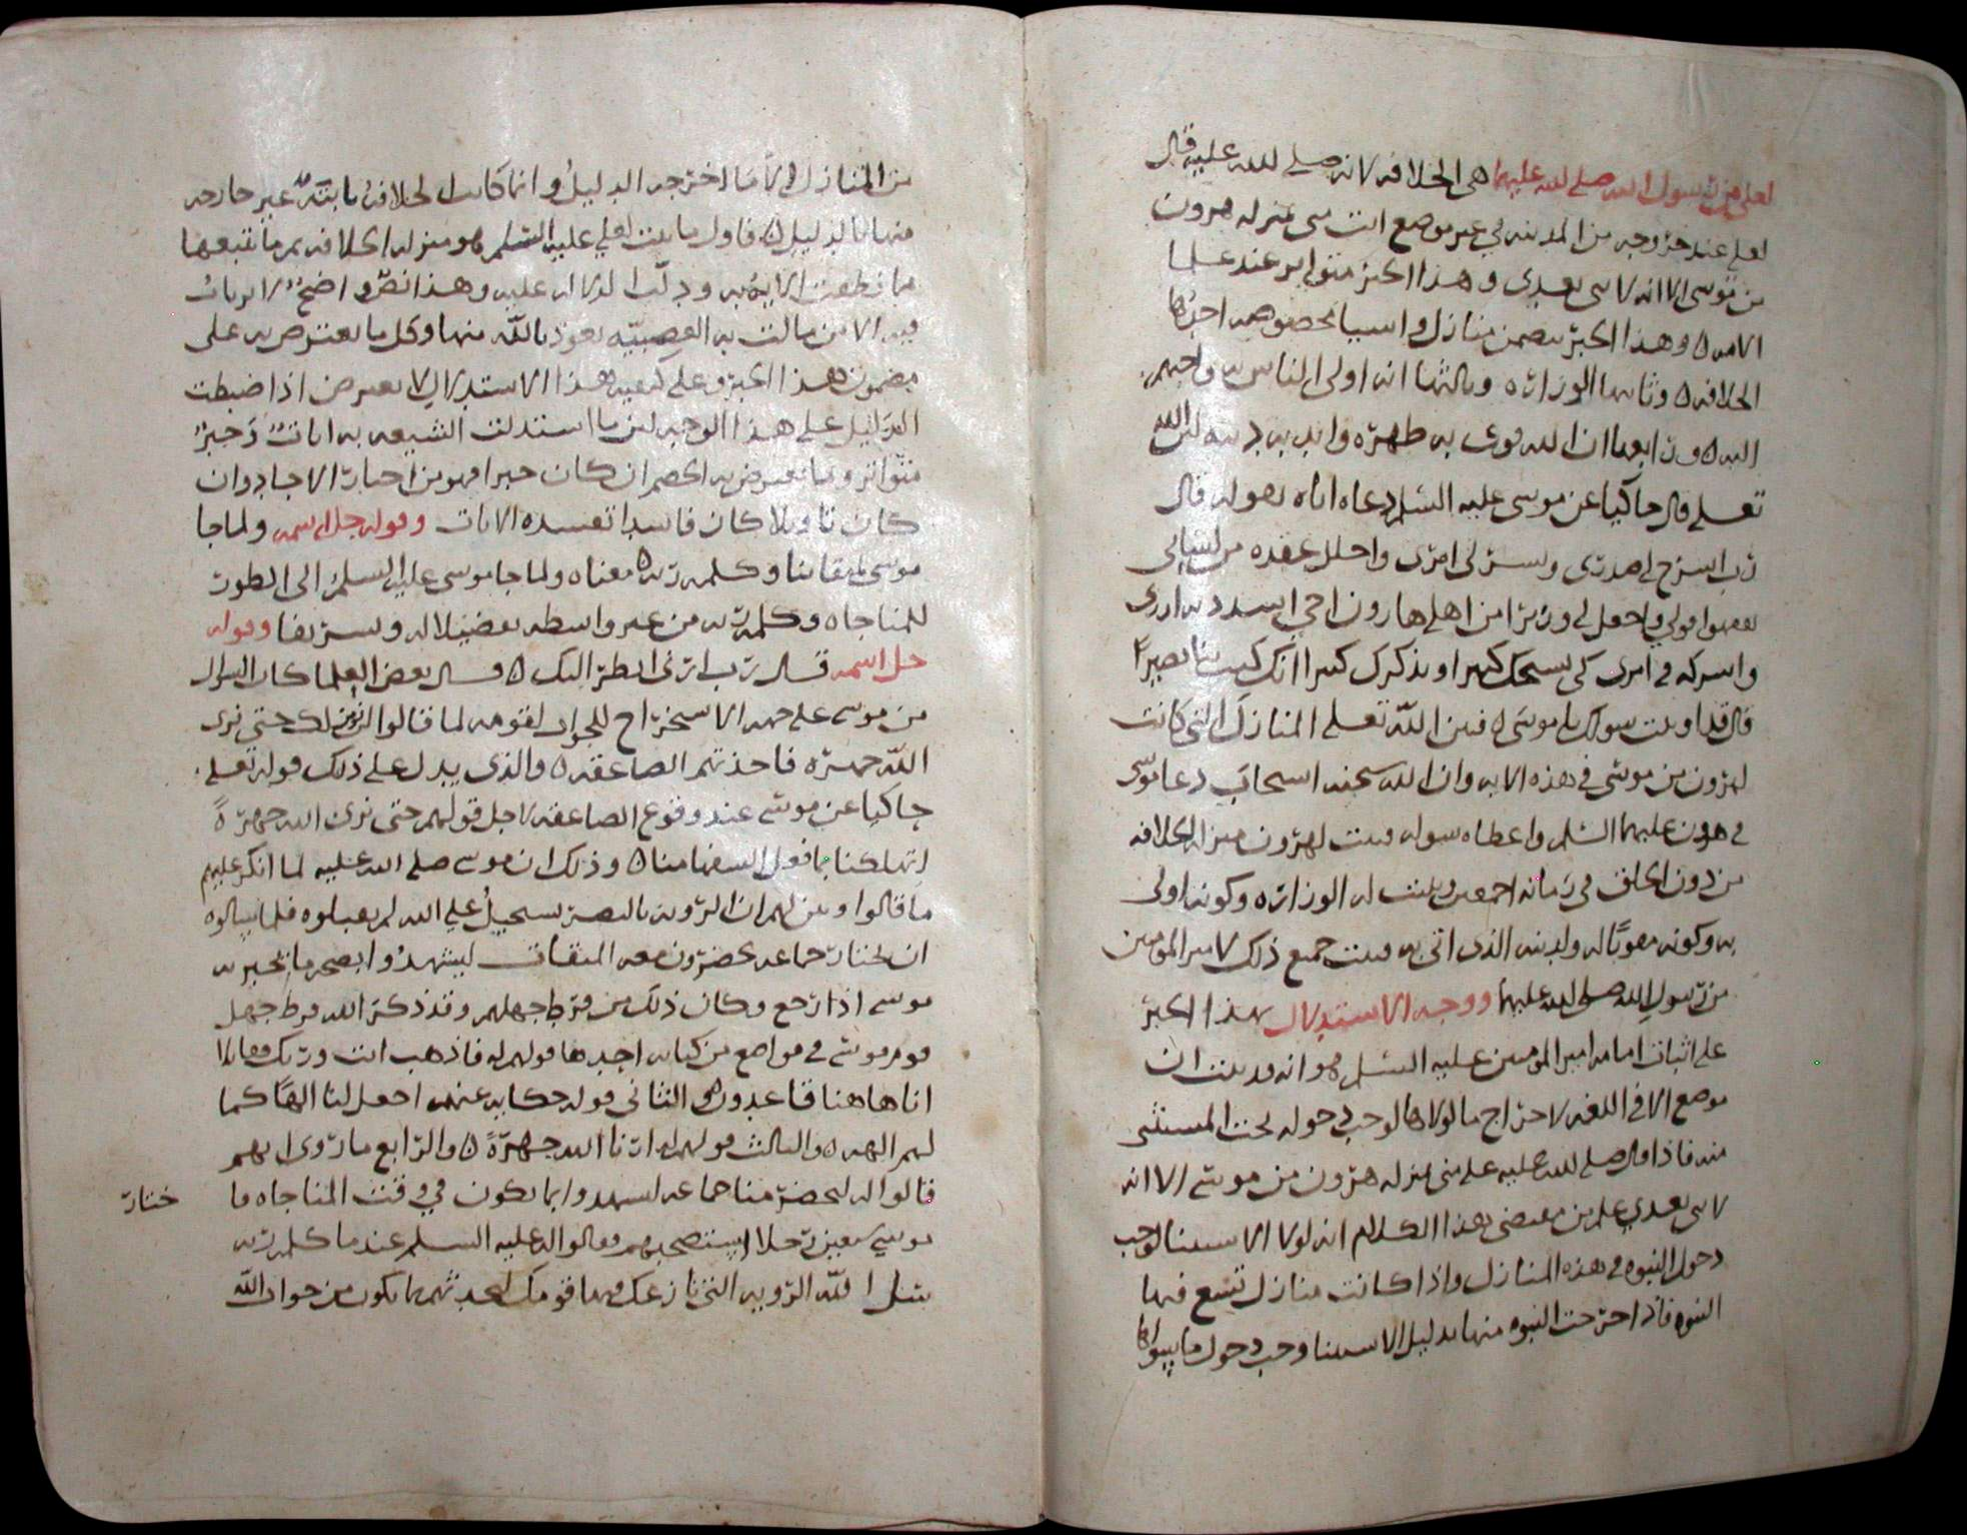 لعلي من رسول الله صلى الله عليهما هي الخلافه لانه صلى الله عليه قال
لعلي عند خروجه من المدينه في غير موضع انت مني بمنزله هرون
من موسى الا انه لا نبي بعدي وهذا الخبر متواتر عند علما
الامه وهذا الخبر يتضمن منازل واسبابا مخصوصه احدها
الخلافه وثانيها الوزاره وثالثها انه اولى الناس به واحبهم
اليه ورابعها ان الله قوى به ظهره وايد به دينه لان الله
تعلى قال حاكيا عن موسى عليه السلم دعاه اياه بقوله قال
رب اشرح لي صدري ويسر لي امري واحلل عقده من لساني
يفقهوا قولي واجعل لي وزيرا من اهلي هارون اخي اشدد به ازري
واشركه في امري كي نسبحك كثيرا ونذكرك كثيرا انك كنت بنا بصيرا
قال قد اوتيت سولك يا موسى فبين الله تعلى المنازل التي كانت
لهرون من موسى في هذه الايه وان الله سبحنه استجاب دعا موسى
في هرون عليهما السلم واعطاه سوله فثبت لهرون منزله الخلافه
من دون الخلق في زمانه اجمعين وثبتت له الوزاره وكونه اولى
به وكونه مقويا له ولدينه الذي اتى به فثبت جميع ذلك لامير المومنين
من رسول الله صلى الله عليهما ووجه الاستدلال بهذا الخبر
على اثبات امامه امير المومنين عليه السلم هو انه قد ثبت ان
موضع الا في اللغه لاخراج ما لولاها لوجب دخوله تحت المستثنى
منه فاذا قال صلى الله عليه علي مني بمنزله هرون من موسى الا انه
لا نبي بعدي علم من مقتضى هذا الكلام انه لولا الاستثنا لوجب
دخول النبوه في هذه المنازل واذا كانت منازل تتبع فيها
النبوه فاذا اخرجت النبوه منها بدليل الاستثنا وجب دخول ما سواها
من المنازل الا ما اخرجه الدليل وانما كانت الخلافه ثابته غير خارجه
منها بالدليل فاول ما يثبت لعلي عليه السلم هو منزله الخلافه ثم ما يتبعها
مما نطقت الايه به ودلت الدلاله عليه وهذا نص واضح لا يرتاب
فيه الا من مالت به العصبيه نعوذ بالله منها وكل ما يعترض به على
مضمون هذا الخبر وعلى كيفيه هذا الاستدلال لا يعترض اذا ضبطت
الدليل على هذا الوجه لان ما استدلت الشيعه به ايات وخبر
متواتر وما يعترض به الخصم ان كان خبرا فهو من اخبار الاحاد وان
كان تاويلا كان فاسدا تفسده الايات وقوله جل اسمه ولما جا
موسى لميقاتنا وكلمه ربه معناه ولما جا موسى عليه السلم الى الطور
للمناجاه وكلمه ربه من غير واسطه تفضيلا له وتشريفا وقوله
جل اسمه قال رب ارني انظر اليك قال بعض العلما كان السوال
من موسى على جهه الاستخراج للجواب لقومه لما قالوا لن نومن لك حتى نرى
الله جهره فاخذتهم الصاعقه والذي يدل على ذلك قوله تعلى
حاكيا عن موسى عند وقوع الصاعقه لاجل قولهم حتى نرى الله جهره
اتهلكنا بما فعل السفها منا وذلك ان موسى صلى الله عليه لما انكر عليهم
ما قالوا وبين لهم ان الرويه بالبصر تستحيل على الله لم يقبلوه فلما سالوه
ان يختار جماعه يحضرون معه الميقات ليشهدوا بصحه ما يخبر به
موسى اذا رجع وكان ذلك من فرط جهلهم وقد ذكر الله فرط جهل
قوم موسى في مواضع من كتابه احدها قولهم له فاذهب انت وربك فقاتلا
انا هاهنا قاعدون والثاني قوله حكايه عنهم اجعل لنا الها كما
لهم الهه والثالث قولهم ارنا الله جهره والرابع ما روي انهم
قالوا له ليحضر منا جماعه ليشهدوا بما يكون في وقت المناجاه فا
ختار
موسى سبعين رجلا ليستصحبهم فقالوا له عليه السلم عندما كلمه ربه
سل الله الرويه التي نازعك فيها قومك لنحدثهم بما يكون من جواب الله